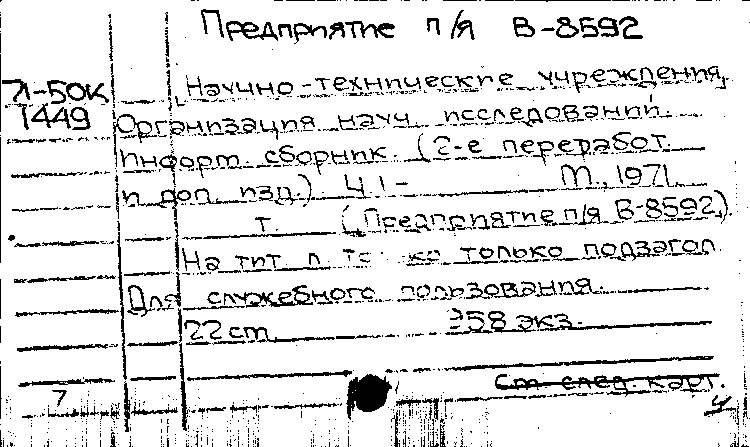 Предприятие п/я В-8592
71-50К
1449
Научно-технические учреждения,
Организация науч. исследований.
Информ. сборник. (2-е переработ.
и доп. изд.). Ч.1- М., 1971.
т. („Предприятие п/я В-8592”).
На тит. л. только подзагол.
Для служебного пользования.
22 cm 358 экз.
См. след. карт.
7